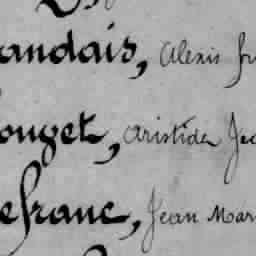 andais, Alexis fr
ouget, Aristide Je
efranc, Jean Mar